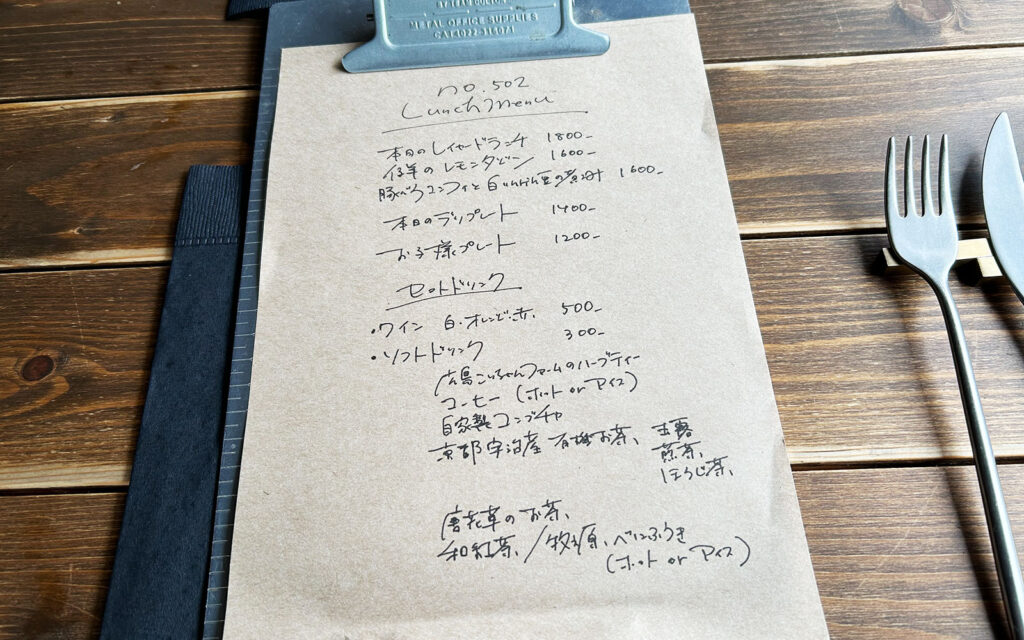 METAL OFFICE SUPPLIES
no.502
Lunch Menu
本日のレイヤードランチ 1800-
仔羊のレモンタジン 1600-
豚バラコンフィと白いんげん豆の煮込み 1600-
本日のデリプレート 1400-
お子様プレート 1200-
セットドリンク
・ワイン 白・オレンジ・赤、 500-
・ソフトドリンク 300-
広島こいちゃんファームのハーブティー
コーヒー (ホット or アイス)
自家製コンブチャ
京都宇治産 有機お茶、玉露
煎茶、
ほうじ茶、
唐花草のお茶、
和紅茶、/牧之原、べにふうき
(ホット or アイス)